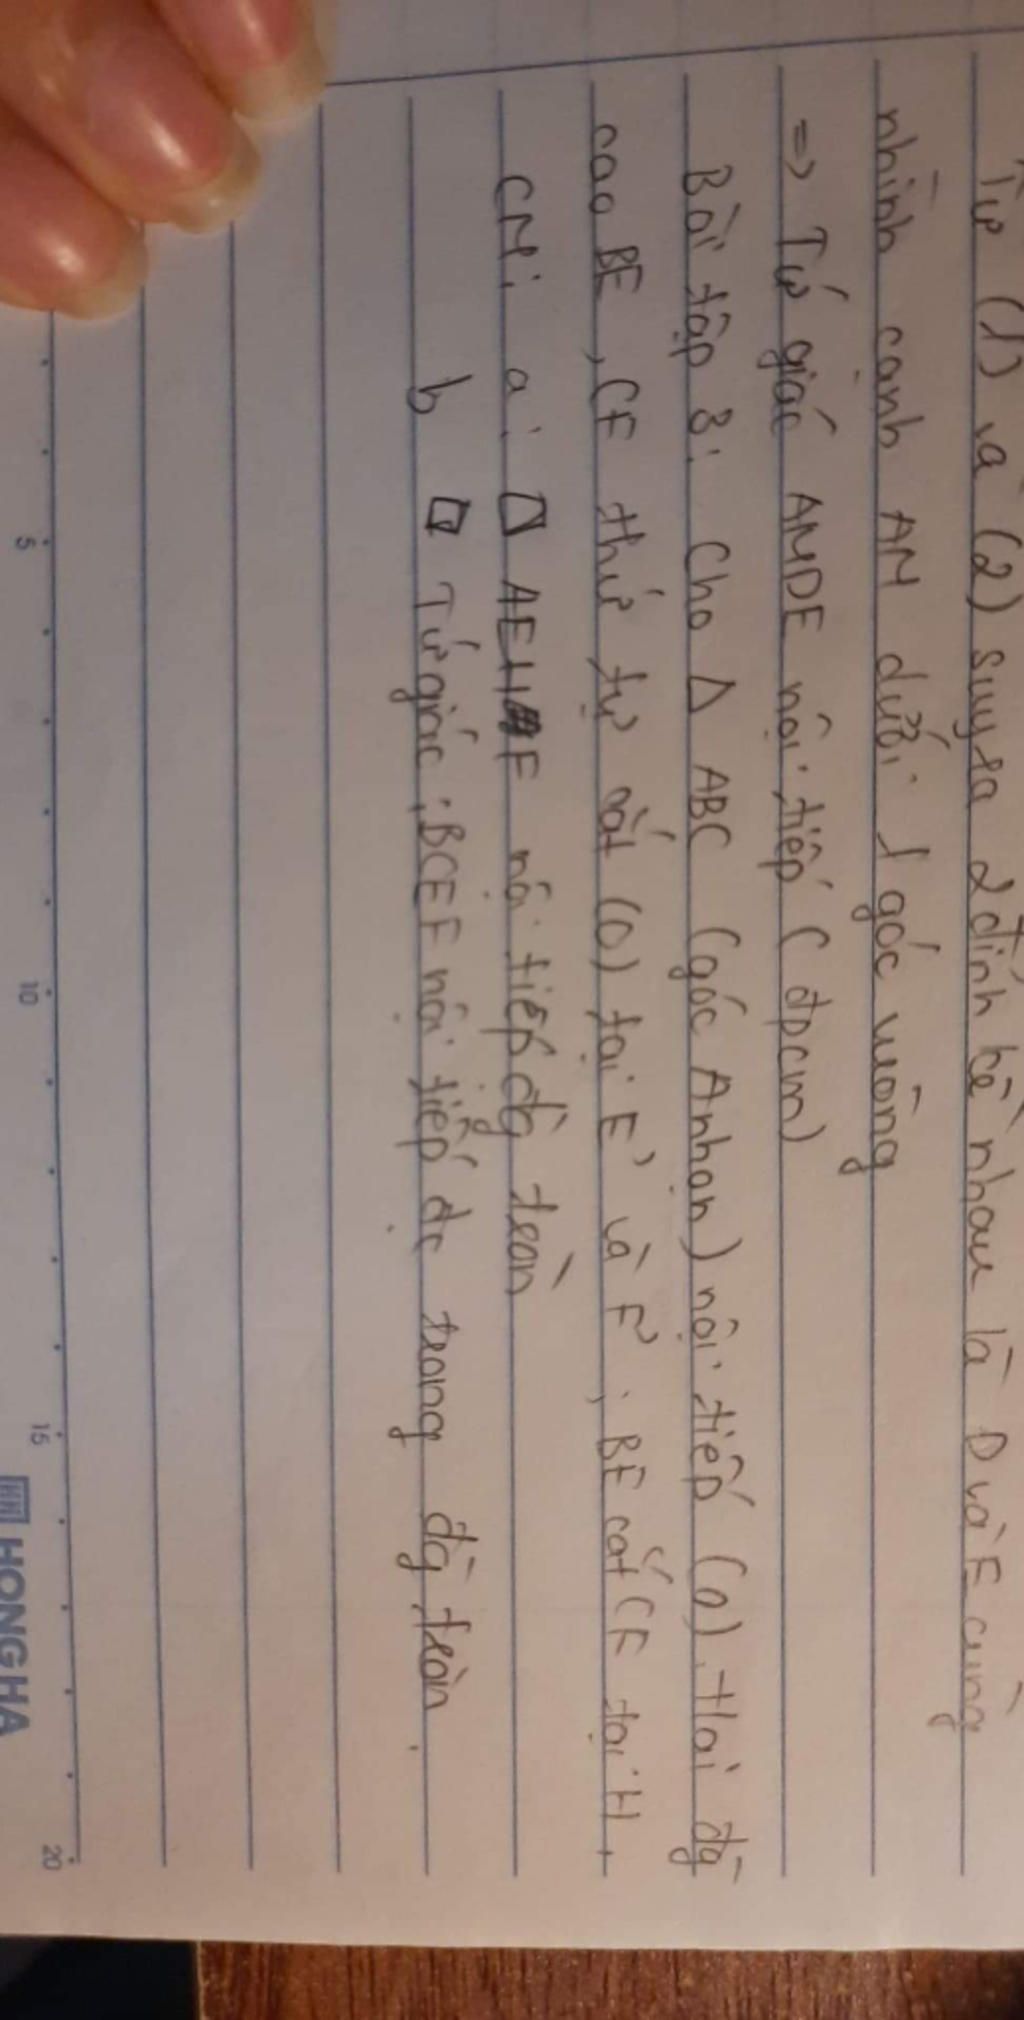 Từ (1) và (2) suy ra 2 đỉnh kề nhau là D và E cùng
nhình cạnh AM dưới 1 góc vuông
=> Tứ giác AMDE nội tiếp (đpcm)
Bài tập 3: Cho Δ ABC (góc A nhọn) nội tiếp (O). Hai đg
cao BE, CF thứ tự cắt (O) tại E' và F', BE cắt CF tại H.
CM: a: □ AEHF nội tiếp đg tròn
b □ Tứ giác BCEF nội tiếp đc trong đg tròn.
5 10 15 20
HONG HA